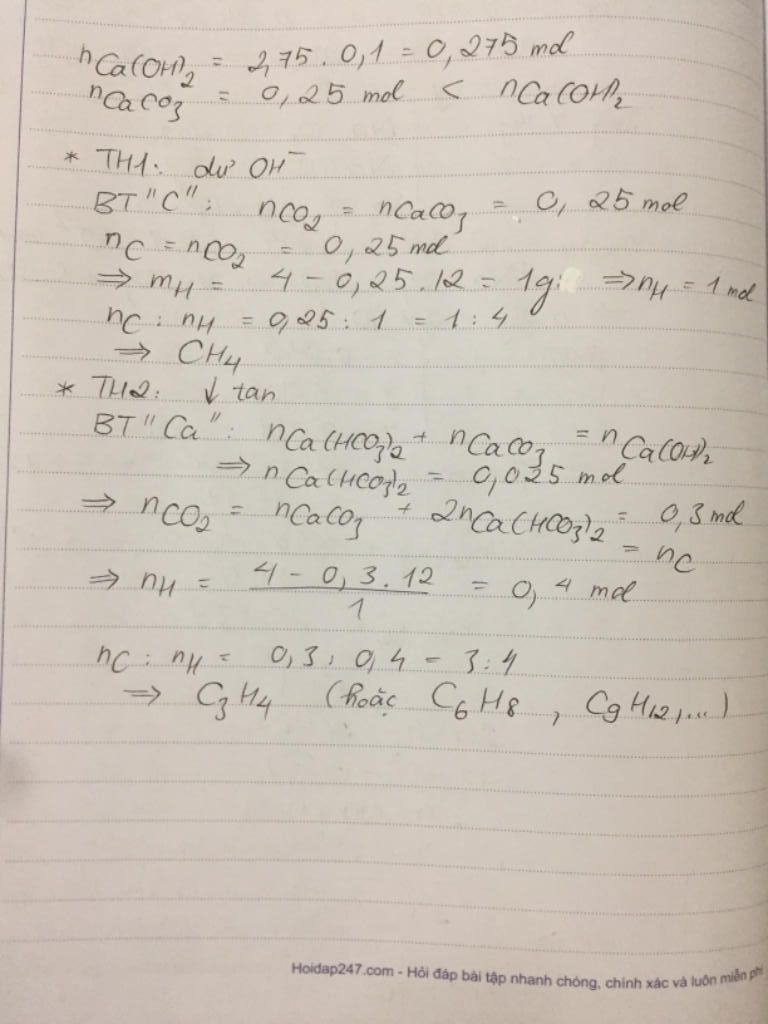 nCa(OH)₂ = 2,75 . 0,1 = 0,275 mol
nCaCO₃ = 0,25 mol < nCa(OH)₂
* TH1: dư OH⁻
BT "C": nCO₂ = nCaCO₃ = 0,25 mol
nC = nCO₂ = 0,25 mol
⇒ mH = 4 - 0,25.12 = 1g ⇒ nH = 1 mol
nC : nH = 0,25 : 1 = 1 : 4
⇒ CH₄
* TH2: ↓ tan
BT "Ca": nCa(HCO₃)₂ + nCaCO₃ = nCa(OH)₂
⇒ nCa(HCO₃)₂ = 0,025 mol
⇒ nCO₂ = nCaCO₃ + 2nCa(HCO₃)₂ = 0,3 mol
= nC
⇒ nH = (4 - 0,3.12)/1 = 0,4 mol
nC : nH = 0,3 : 0,4 = 3:4
⇒ C₃H₄ (hoặc C₆H₈, C₉H₁₂,...)
Hoidap247.com - Hỏi đáp bài tập nhanh chóng, chính xác và luôn miễn phí